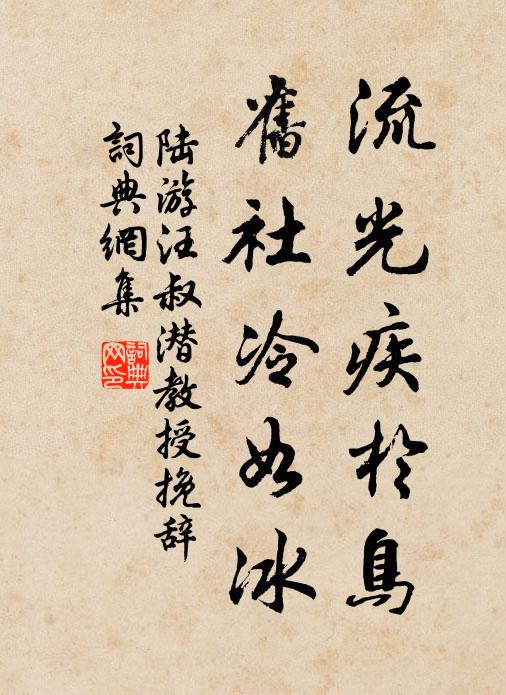 流光疾於鳥
舊社冷如冰
陆游汪叔潜教授挽辞
詞典網集
詞典網印